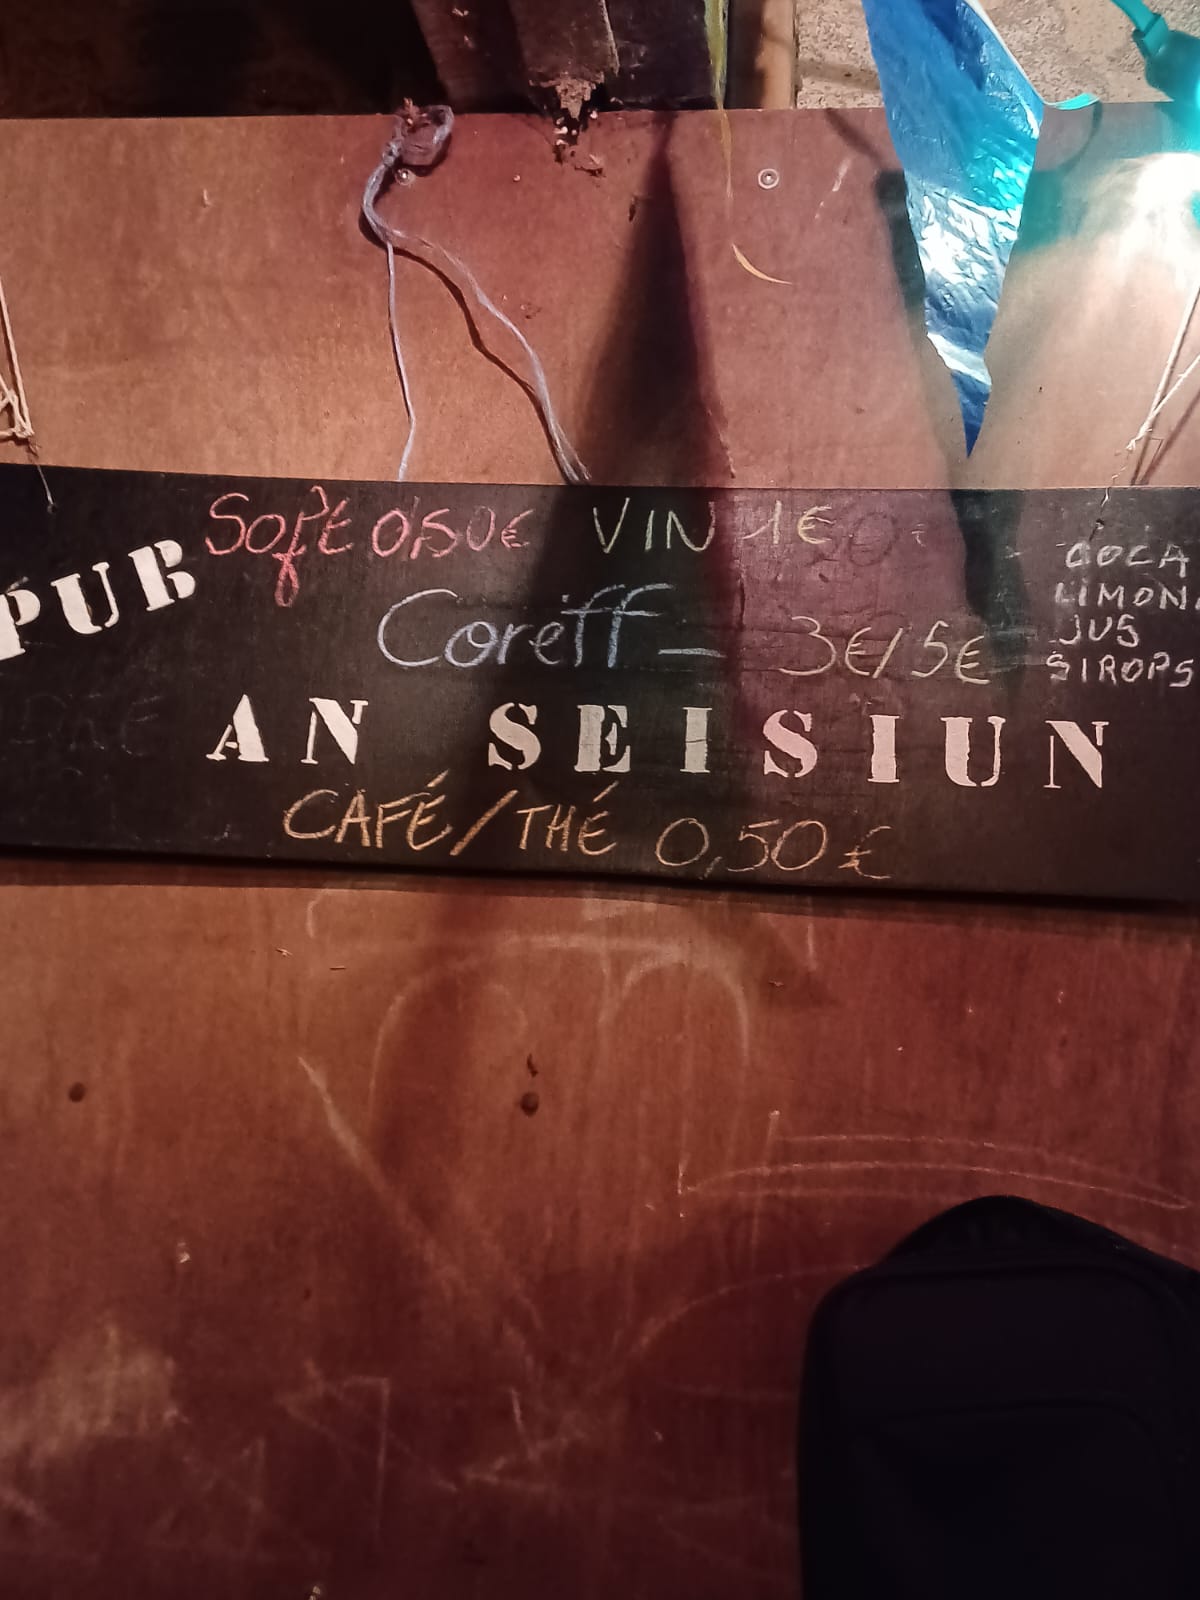 Soft 0,50€ VIN 1€
PUB
Coreff — 3€/5€
COCA
LIMON
JUS
SIROPS
AN SEISIUN
CAFÉ/THÉ 0,50€